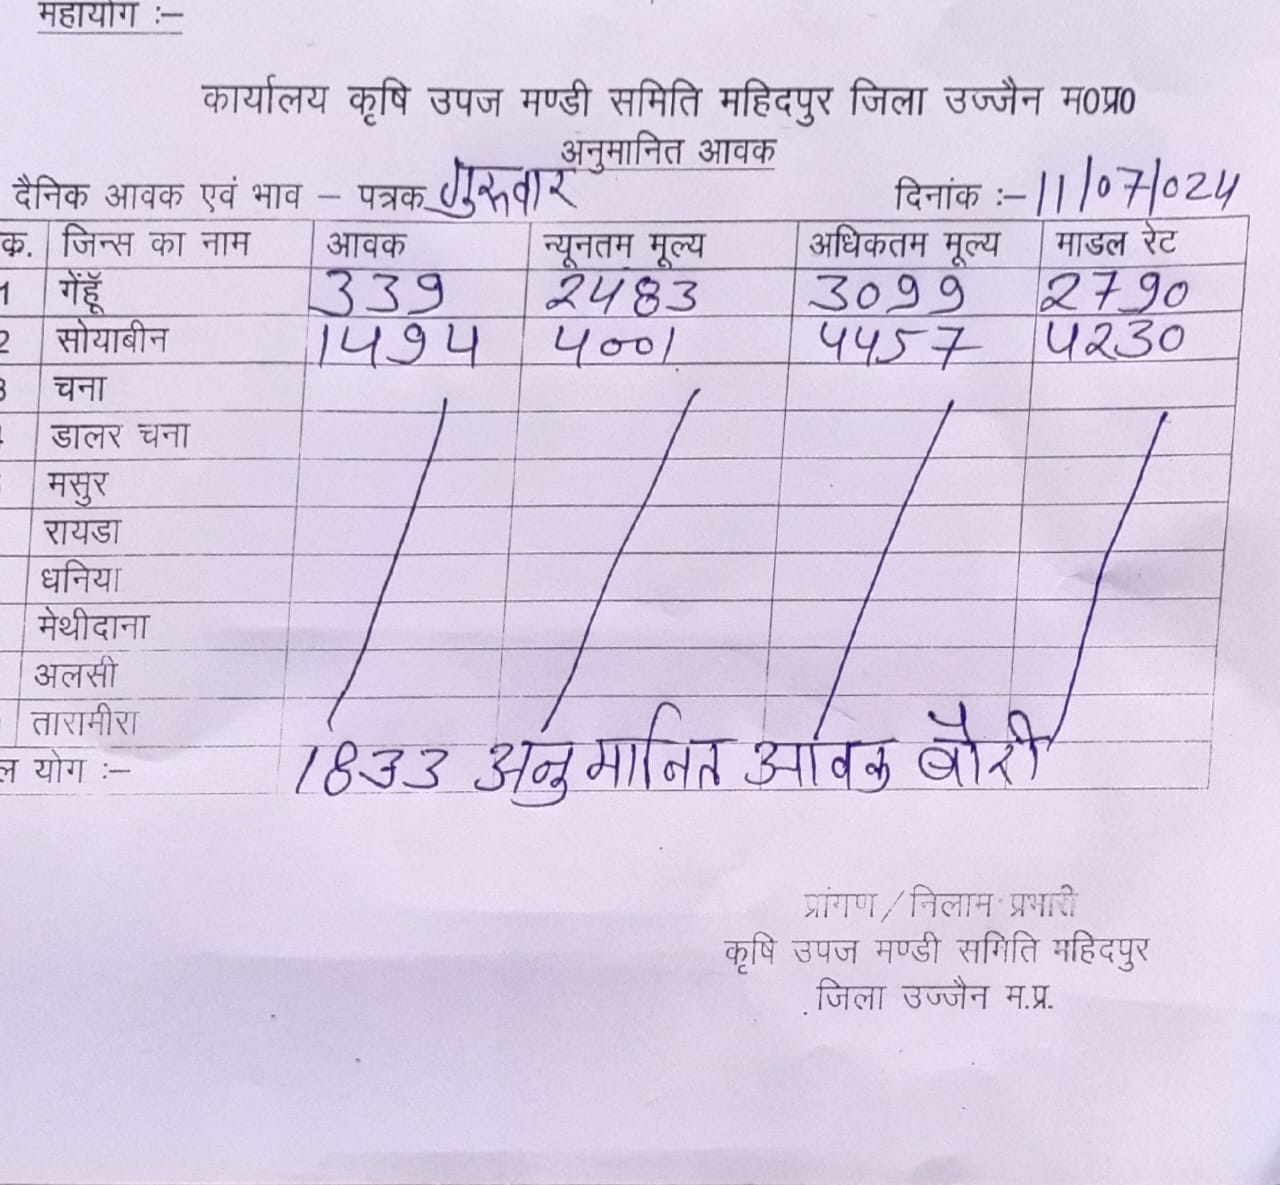 महायोग :–
कार्यालय कृषि उपज मण्डी समिति महिदपुर जिला उज्जैन म0प्र0
अनुमानित आवक
दैनिक आवक एवं भाव – पत्रक गुरूवार दिनांक :– 11/07/024
क. जिन्स का नाम आवक न्यूनतम मूल्य अधिकतम मूल्य माडल रेट
1 गेंहूॅ 339 2483 3099 2790
2 सोयाबीन 1494 4001 4457 4230
3 चना
डालर चना
मसुर
रायडा
धनिया
मेथीदाना
अलसी
तारामीरा
ल योग :– 1833 अनुमानित आवक बोरी
प्रांगण / निलाम प्रभारी
कृषि उपज मण्डी समिति महिदपुर
जिला उज्जैन म.प्र.